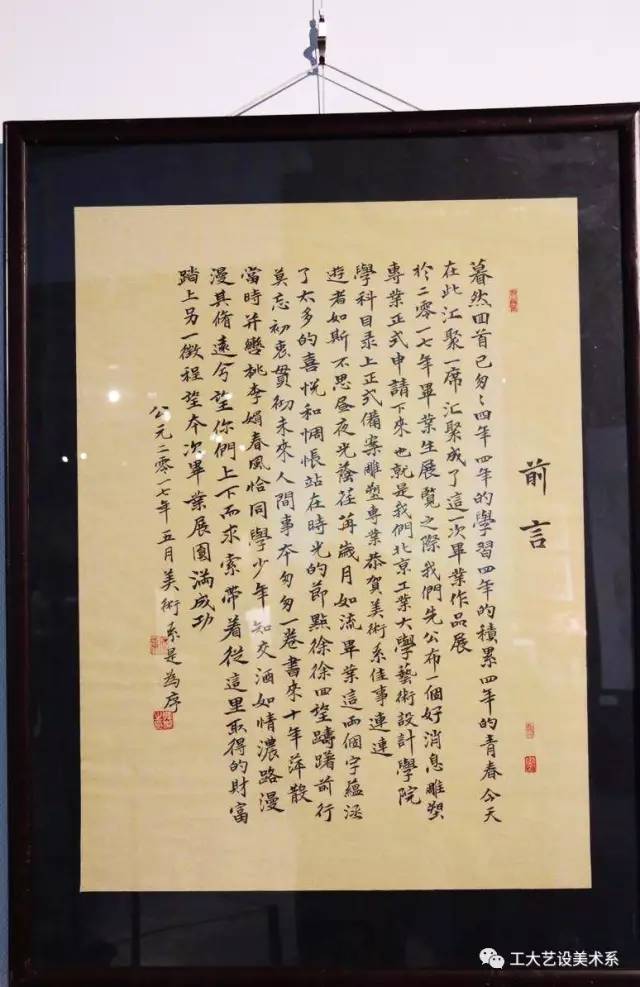 前言
暮然回首已匆匆四年四年的學習四年的積累四年的青春今天
在此江聚一席汇聚成了這一次畢業作品展
於二零一七年畢業生展覽之際我們先公布一個好消息雕塑
專業正式申請下來也就是我們北京工業大學藝術設計學院
學科目录上正式備案雕塑專業恭賀美術系佳事連連
逰者如斯不思昼夜光蔭荏苒歲月如流畢業這兩個字蘊涵
了太多的喜悅和惆悵站在時光的節點徐徐回望躊躇前行
莫忘初衷贯彻未來人間事本匆匆一卷書來十年萍散
當時并轡桃李娟春風恰同學少年知交酒如情濃路漫
漫其脩遠兮望你們上下而求索帶着從這里取得的財富
踏上另一徵程望本次畢業展圆滿成功
公元二零一七年五月美術系是為序
工大艺设美术系